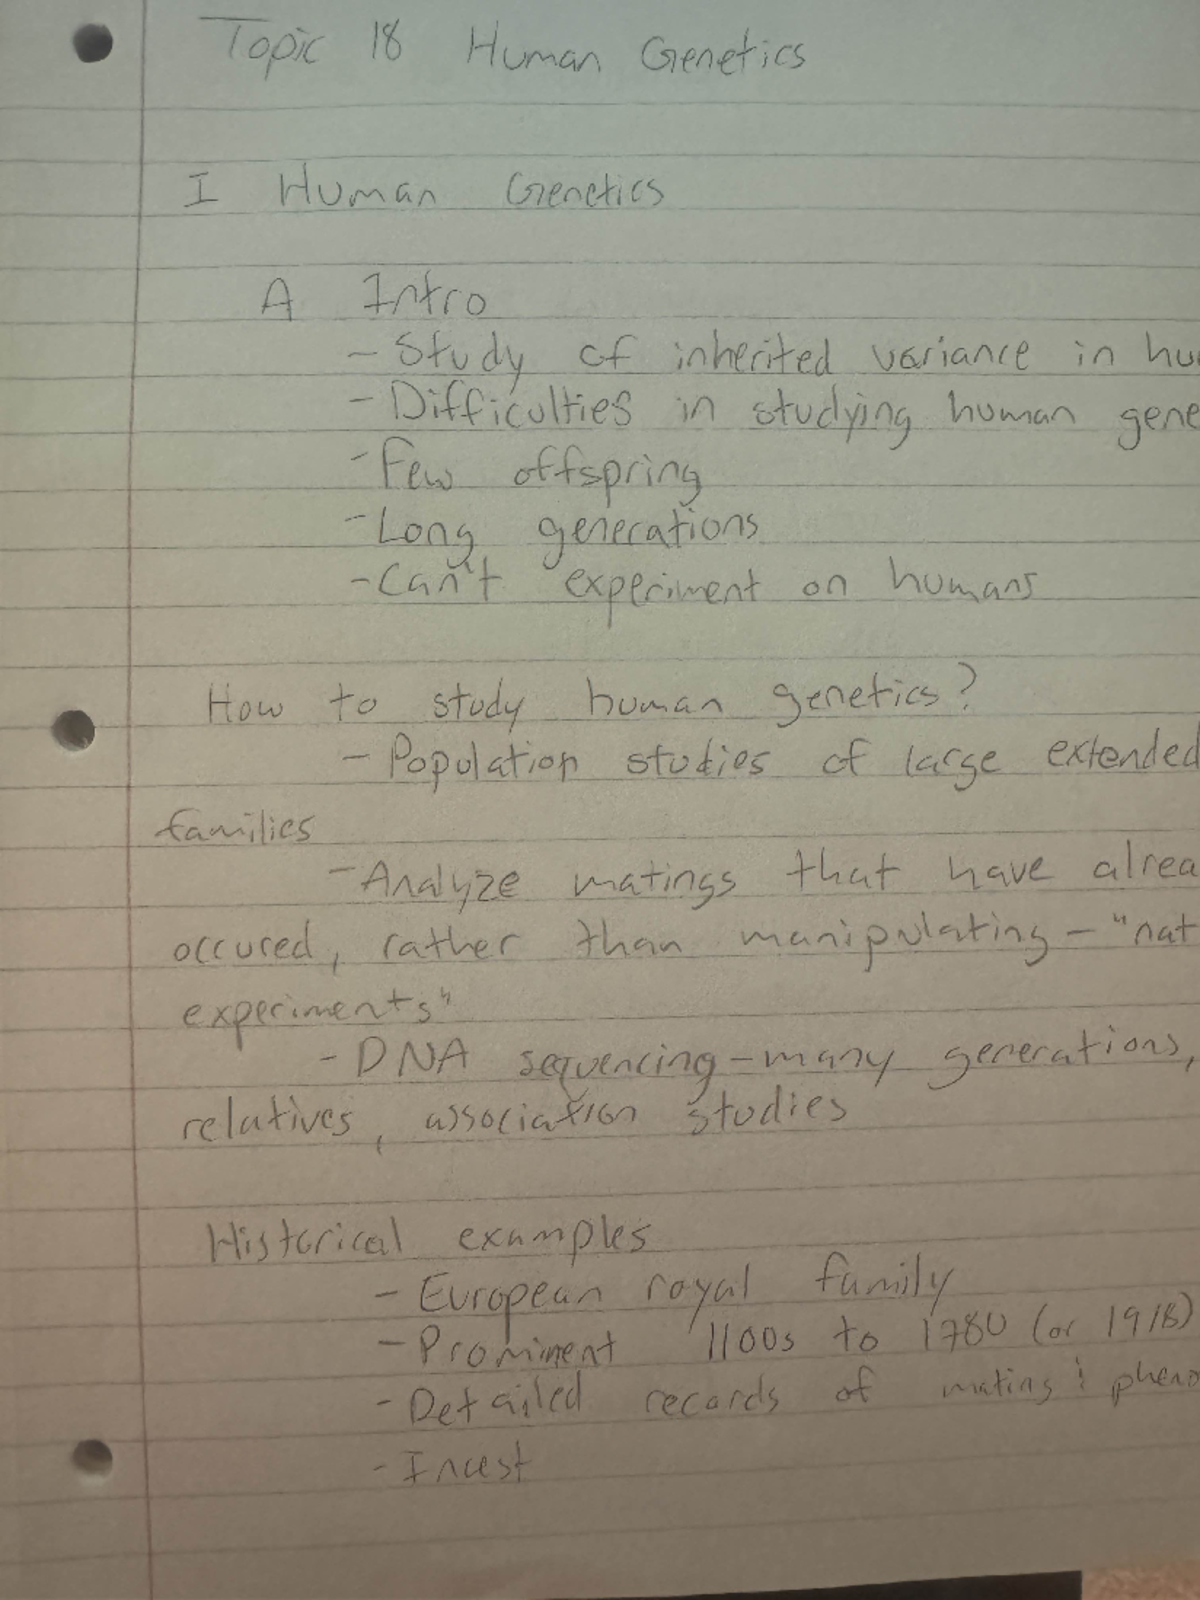 Topic 18 Human Genetics
I Human Genetics
A Intro
- Study of inherited variance in hu
- Difficulties in studying human gene
- Few offspring
- Long generations
- Can't experiment on humans
How to study human genetics?
- Population studies of large extended
families
- Analyze matings that have alrea
occured, rather than manipulating - "nat
experiments"
- DNA sequencing - many generations,
relatives, association studies
Historical examples
- European royal family
- Prominent 1100s to 1780 (or 1918)
- Detailed records of mating & pheno
- Incest